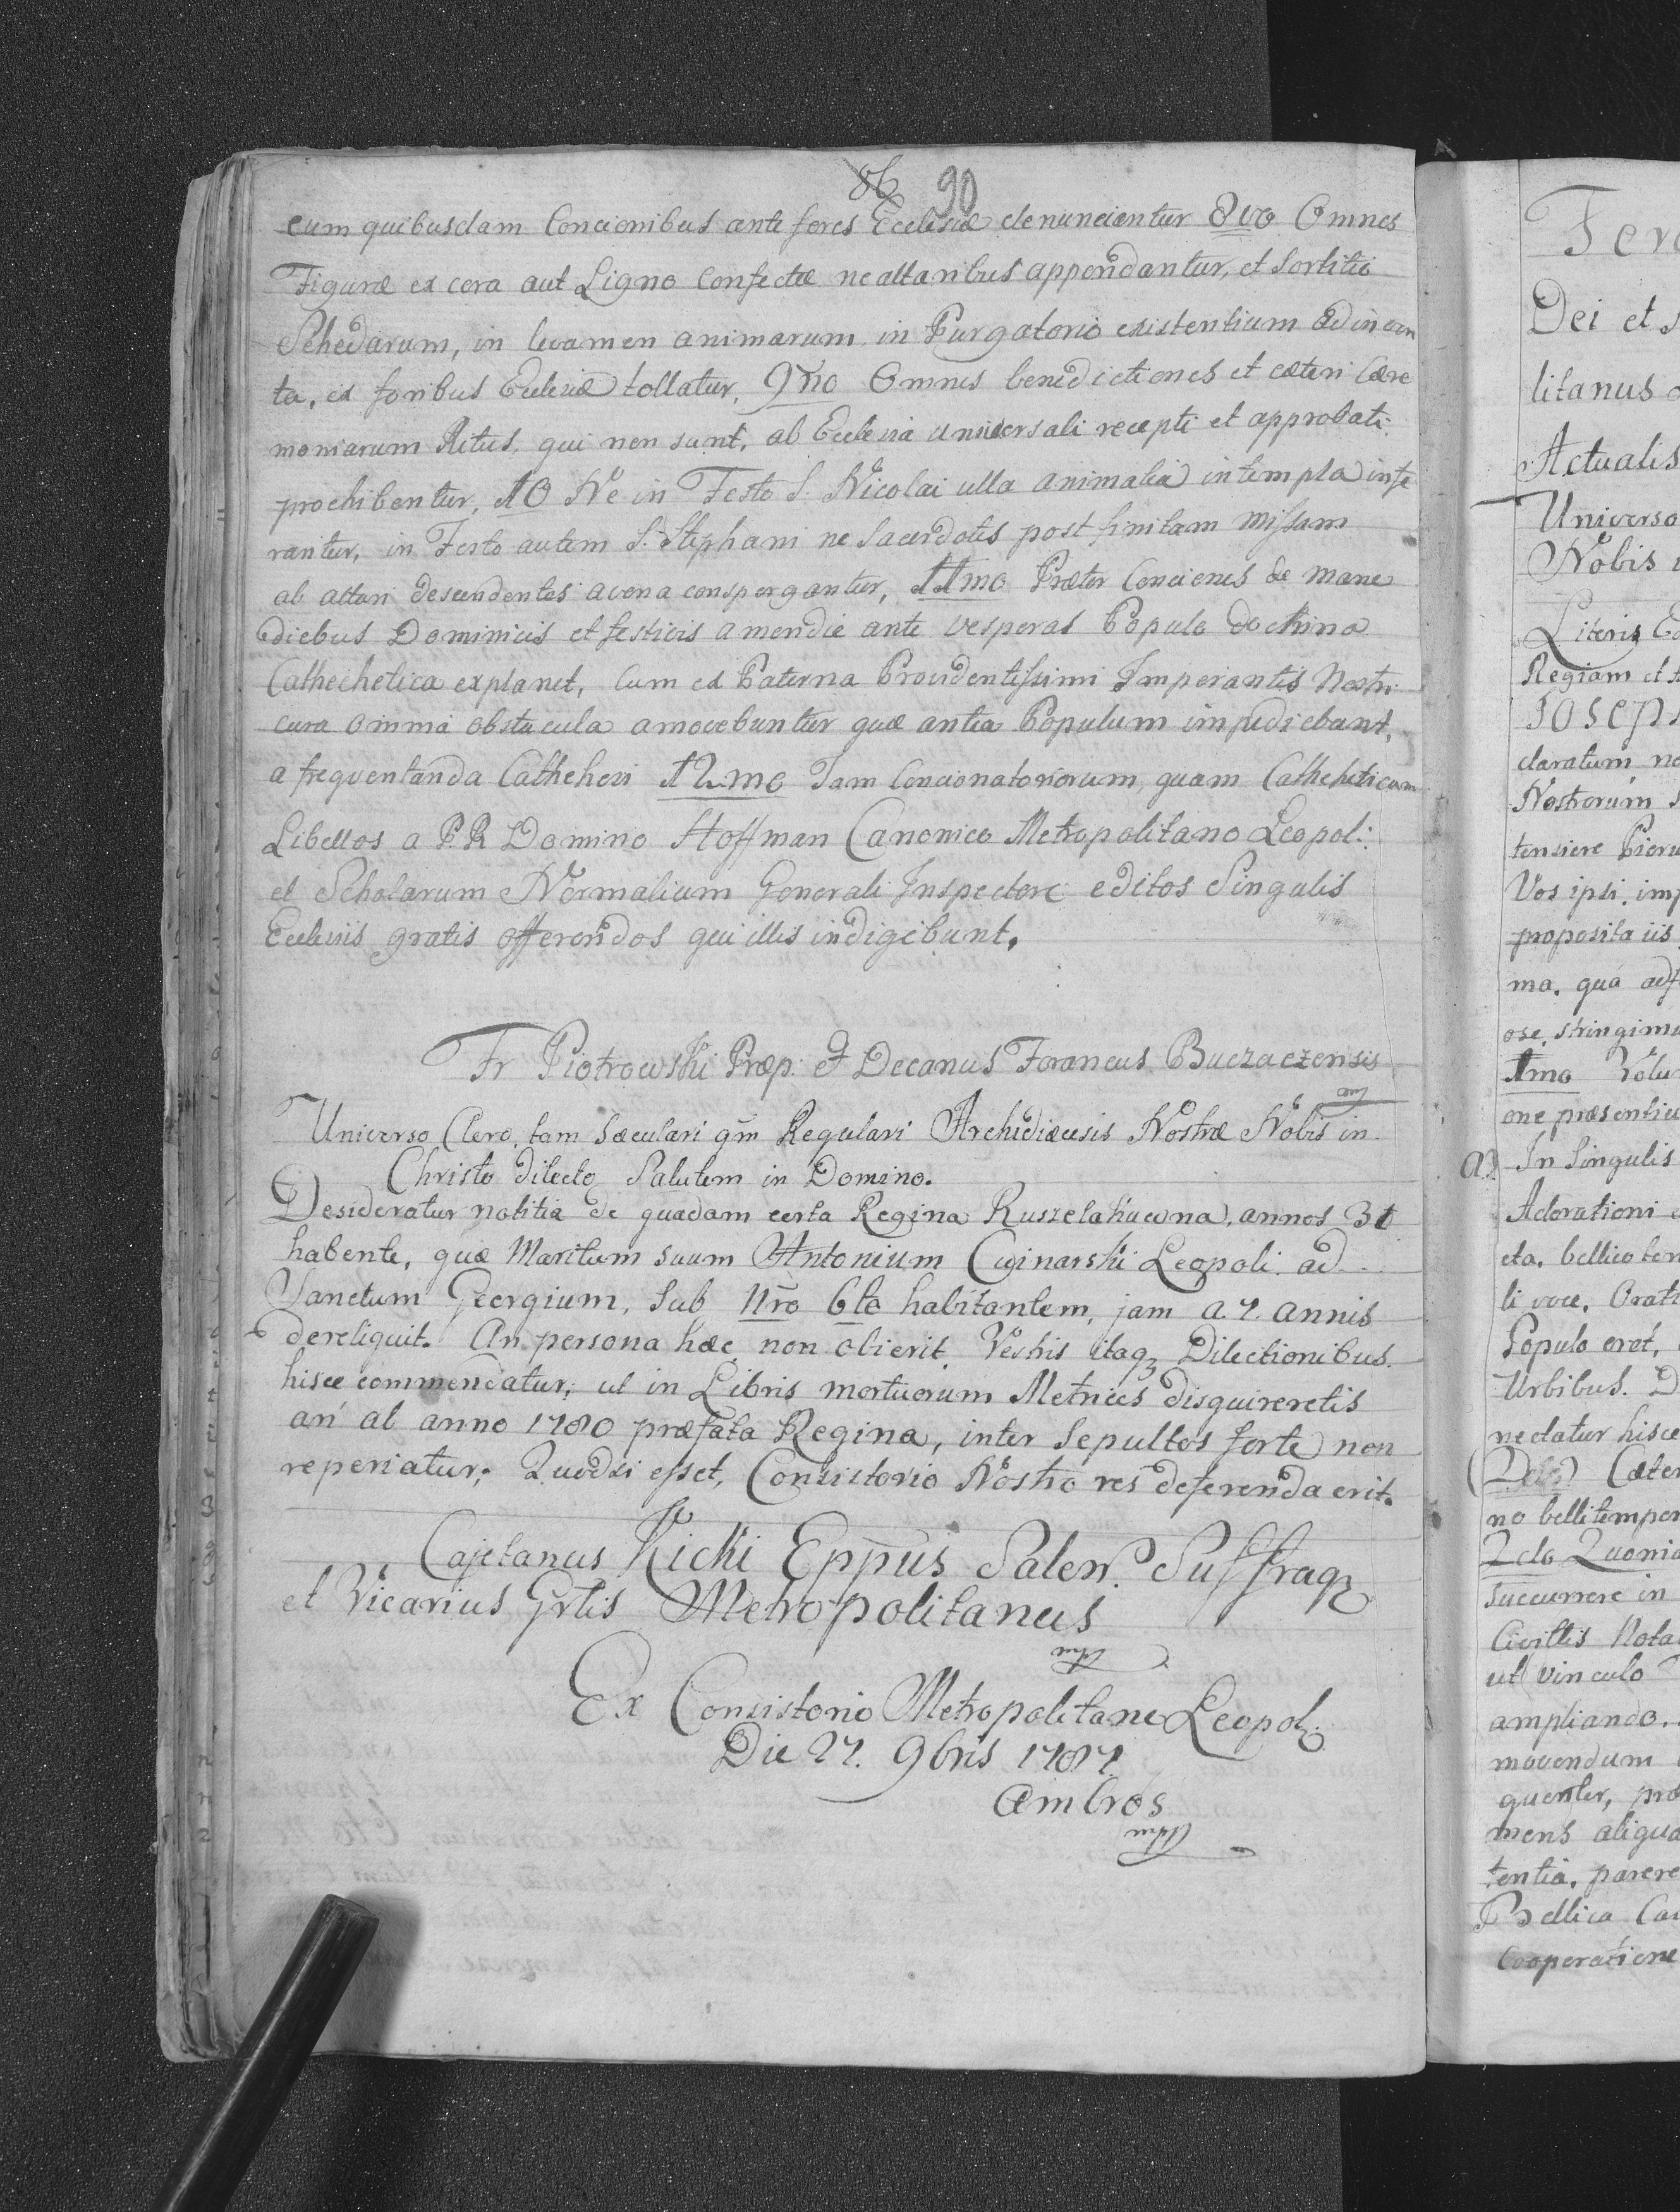 86 90
cum quibusdam Concionibus ante fores Ecclesiæ denuncientur 8vo Omnes
Figuræ ex cera aut Ligno Confectæ ne altaribus appendantur, et Sortitio
Schedarum, in levamen animarum in Purgatorio existentium adinven
ta, ex foribus Ecclesiæ tollatur, 9no Omnes benedictiones et cæteri Cære
moniarum Ritus, qui non sunt, ab Ecclesia universali recepti et approbati
prochibentur, 10 Ne in Festo S. Nicolai ulla animalia in templa infe
rantur, in Festo autem S. Stephani ne Sacerdotes post finitam Missam
ab altari descendentes avena conspergantur, 11mo Præter Conciones de mane
diebus Dominicis et festivis a meridie ante vesperas Populo doctrina
Cathechetica explanet, Cum ex Paterna Providentissimi Imperantis Nostri
cura omnia obstacula amovebuntur quæ antea Populum impediebant,
a freqventanda Cathehesi 12mo Tam Concionatoriorum, quam Catheheticum
Libellos a P. R Domino Hoffman Canonico Metropolitano Leopol:
et Scholarum Normalium Generali Inspectore editos Singulis
Ecclesiis gratis offerendos qui illis indigebunt.
Fr Piotrowski Præp: et Decanus Foraneus Buczaczensis
Universo Clero, tam Sæculari qm Regulari Archidiæcesis Nostræ Nobis in
Christo dilecto Salutem in Domino.
Desideratur notitia de quadam certa Regina Ruszelakuwna, annos 31
habente, quæ Maritum suum Antonium Cwinarski Leopoli ad
Sanctum Georgium, Sub Nro 6to habitantem, jam a 7. annis
dereliquit. An persona hæc non obierit. Vestris itaq Dilectionibus
hisce commendatur, ut in Libris mortuorum Metrices disquireretis
an ab anno 1780 præfata Regina, inter Sepultos forte non
reperiatur; Quodsi esset, Consistorio Nostro res deferenda erit.
Cajetanus Kicki Eppus Salen. Suffrag
et Vicarius Grlis Metropolitanus
mp
Ex Consistorio Metropolitano Leopol:
Die 27. 9bris 1787
Ambros
mp
Dei et
litanus
Actualis
Universo
Nobis
Literis
Regiam et
Joseph
claratum
Nostrorum
Vos ipsi. imp
proposita iis
ma. qua
ose, stringimu
1mo
one præsentiu
a) In Singulis
Adorationi
eta. bellico tem
li voce. Orat
Populo oret,
Urbibus. D
nectatur hisce
no belli tempor
2do Quonia
succurrere in
ut vinculo
ampliando.
movendum
quenter, pro
mens aliqua
tentia. parere
Bellica Ca
Cooperatione